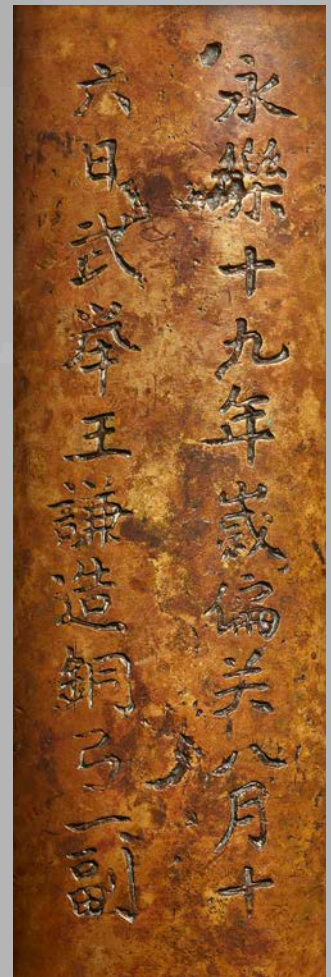 永樂十九年嵗偏关八月十
六日武举王謙造銅弓一副